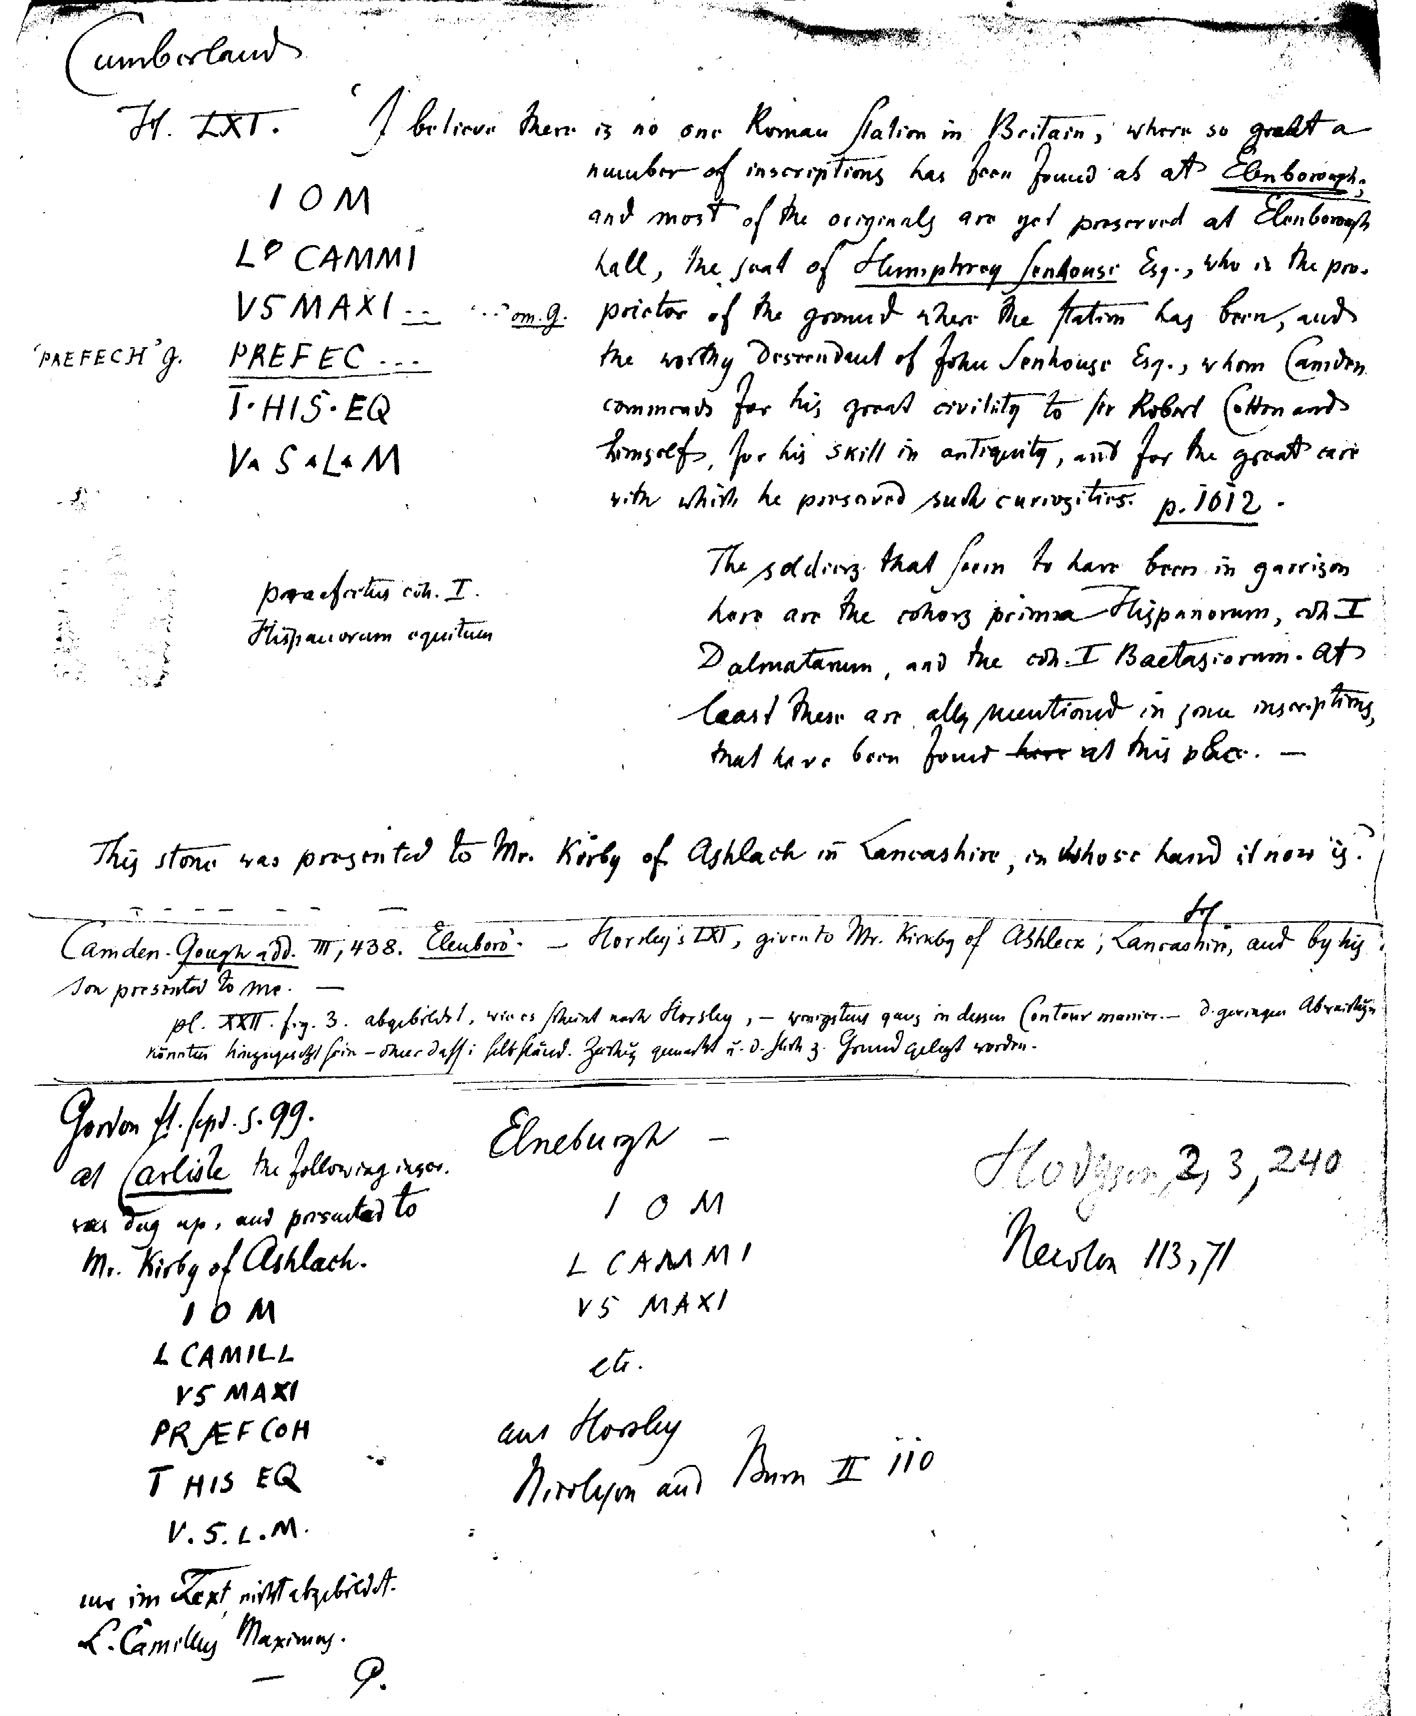 Cumberland
H. LXI.
I O M
L P CAMMI
VS MAXI... ... om. G.
'PREFECH' G. PREFEC ...
I · HIS · EQ
V▴ S▴L▴M
praefectus coh. I.
Hispanorum equitum
'I believe there is no one Roman station in Britain, where so great a
number of inscriptions has been found as at Elenborough;
and most of the originals are yet preserved at Elenborough
hall, the seat of Humphrey Senhouse Esq., who is the pro-
prietor of the ground where the station has been, and
the worthy Descendant of John Senhouse Esq., whom Camden
commends for his great civility to sir Robert Cotton and
himself, for his skill in antiquity, and for the great care
with which he preserved such curiosities. p. 1012.
The soldiers that seem to have been in garrison
here are the cohors prima Hispanorum, coh. I
Dalmatarum, and the coh. I Baetasiorum. At
least these are all mentioned in some inscriptions,
that have been found here at this place. —
This stone was presented to Mr. Kirby of Ashlach in Lancashire, in whose hand it now is.'
Camden-Gough add. III, 438. Elenboro'. — Horsley's LXI, given to Mr. Kirkby of Ashleck, Lancashire, and by his
son presented to me. —
pl. XXII. fig. 3. abgebildet, wie es scheint nach Horsley, — wenigstens ganz in dessen Contour manier. — d. geringen Abweichungen
könnten hinzugesetzt sein — ohne dass selbständ. Zeichng gemacht u. d. Stich z. Grund gelegt worden.
Gordon It. sept. S. 99.
at Carlisle the following inscr.
was dug up, and presented to
Mr. Kirby of Ashlach.
I O M
L CAMILL
VS MAXI
PRÆF COH
I HIS EQ
V. S. L. M.
nur im Text, nicht abgebildet.
L. Camillus Maximus.
— P.
Elneburgh —
I O M
L CAMMI
VS MAXI
etc.
aus Horsley
Nicolson and Burn II 110
Hodgson, 2, 3, 240
Newton 113, 71